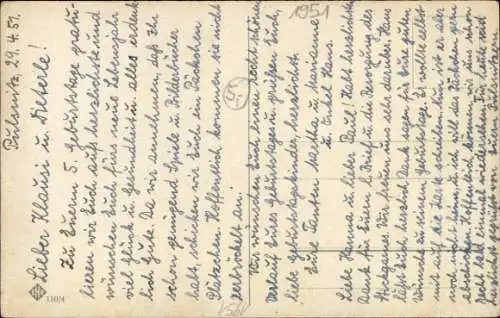 Pulsnitz, 29.4.51.
Lieber Klausi u. Dieterle!
Zu Euerm 5. Geburtstage gratu-
lieren wir Euch aufs herzlichste und
wünschen Euch fürs neue Lebensjahr
viel Glück u. Gesundheit u. alles erdenk
lich Gute. Da wir annehmen, daß Ihr
schon genügend Spiele u. Bilderbücher
habt, schicken wir Euch ein Päckchen
Plätzchen. Hoffentlich kommen sie nicht
zerbröckelt an.
Wir wünschen Euch einen recht schönen
Verlauf Eures Geburtstages u. grüßen Euch,
liebe Geburtstagskinder, herzlichst
Eure Tanten Martha u. Marianne
u. Onkel Hans.
Liebe Hanna u. lieber Paul! Habt herzlichsten
Dank für Euern l. Brief u. die Besorgung des
Stickgarnes. Wir freuen uns sehr darüber. Hans
läßt Euch herzlich Dank sagen für Eure guten
Wünsche zu seinem Geburtstage. Er wollte selbst
mit auf die Karte schreiben. Nun ist er aber
noch nicht u. ich will das
Hoffentlich können wir
1951
5,-
110M